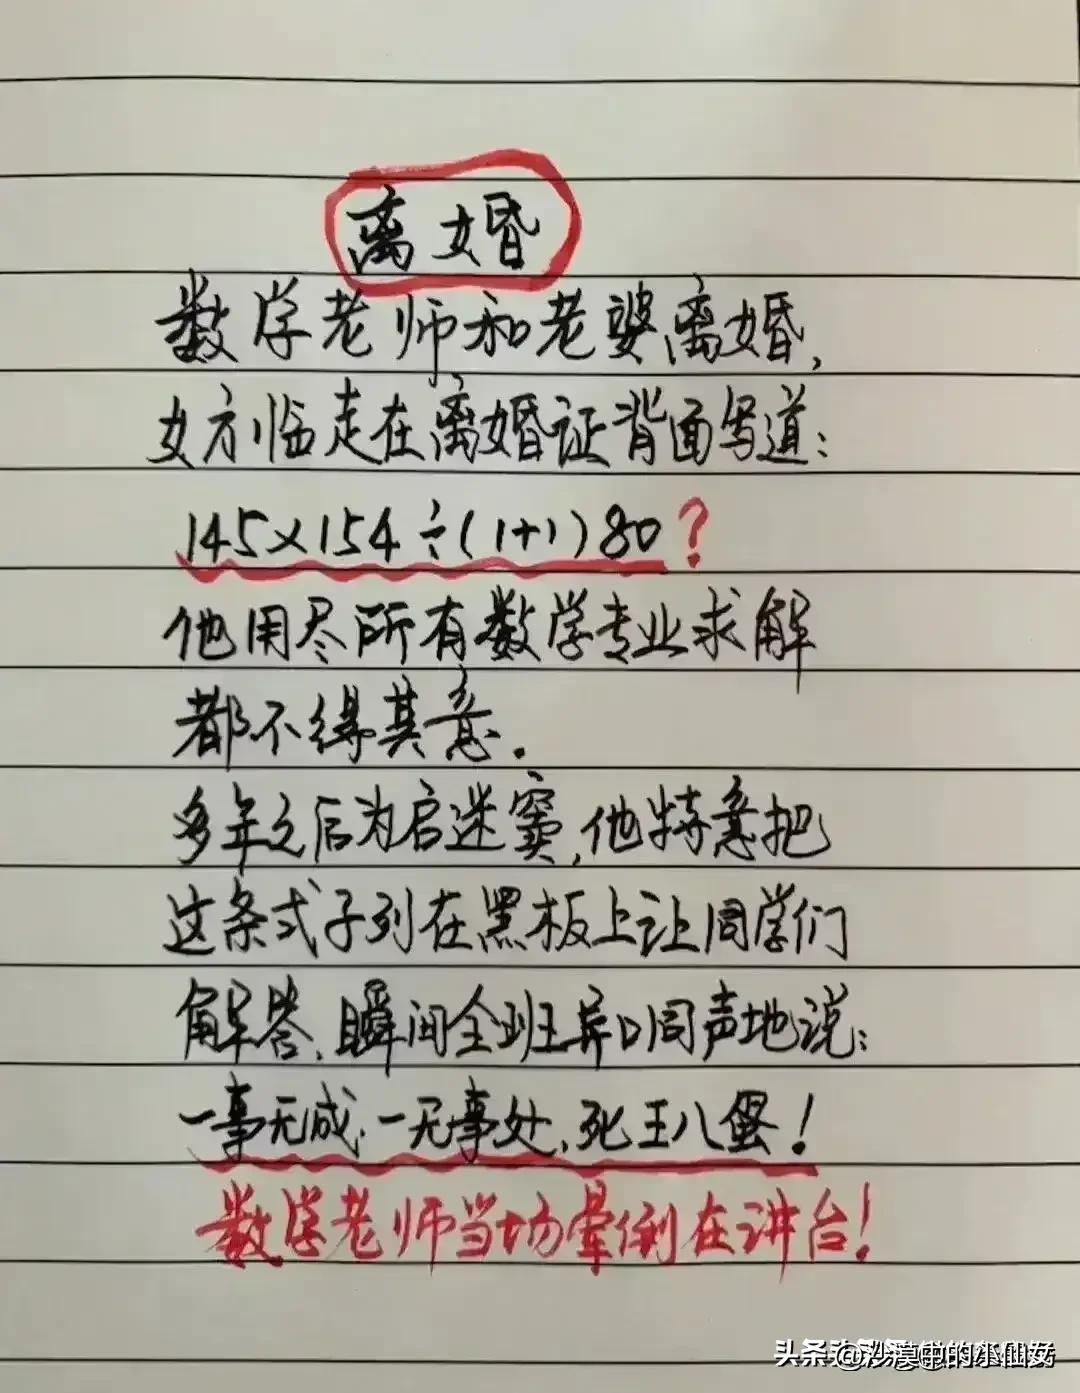 离婚
数学老师和老婆离婚,
女方临走在离婚证背面写道:
145×154÷(1+1)80?
他用尽所有数学专业求解
都不得其意.
多年之后为启迷窦,他特意把
这条式子列在黑板上让同学们
解答,瞬间全班异口同声地说:
一事无成.一无事处,死王八蛋!
数学老师当场晕倒在讲台!
头条
的小仙女